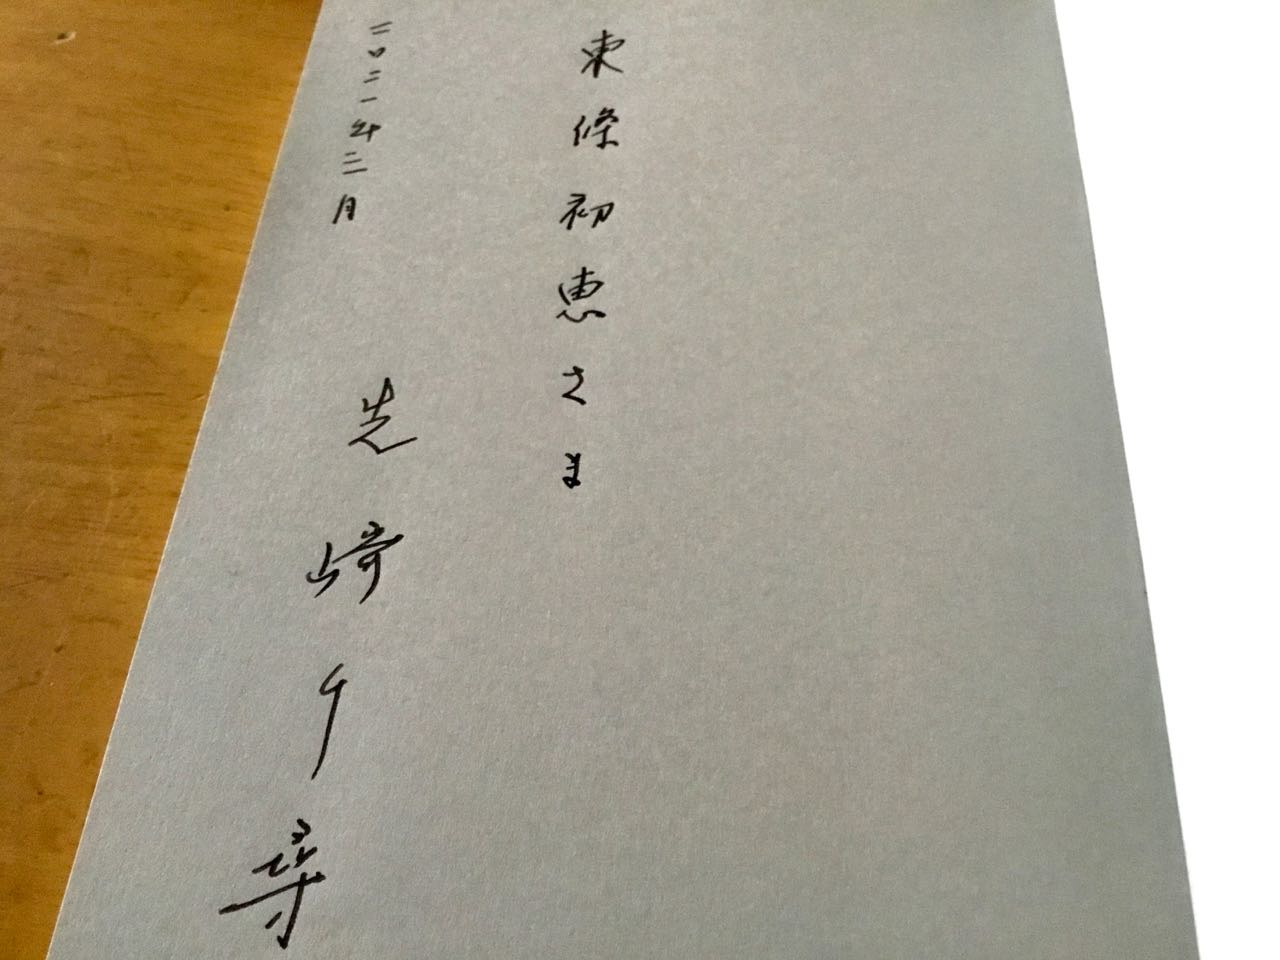 東條初恵さま
二〇二一年三月
先崎千尋